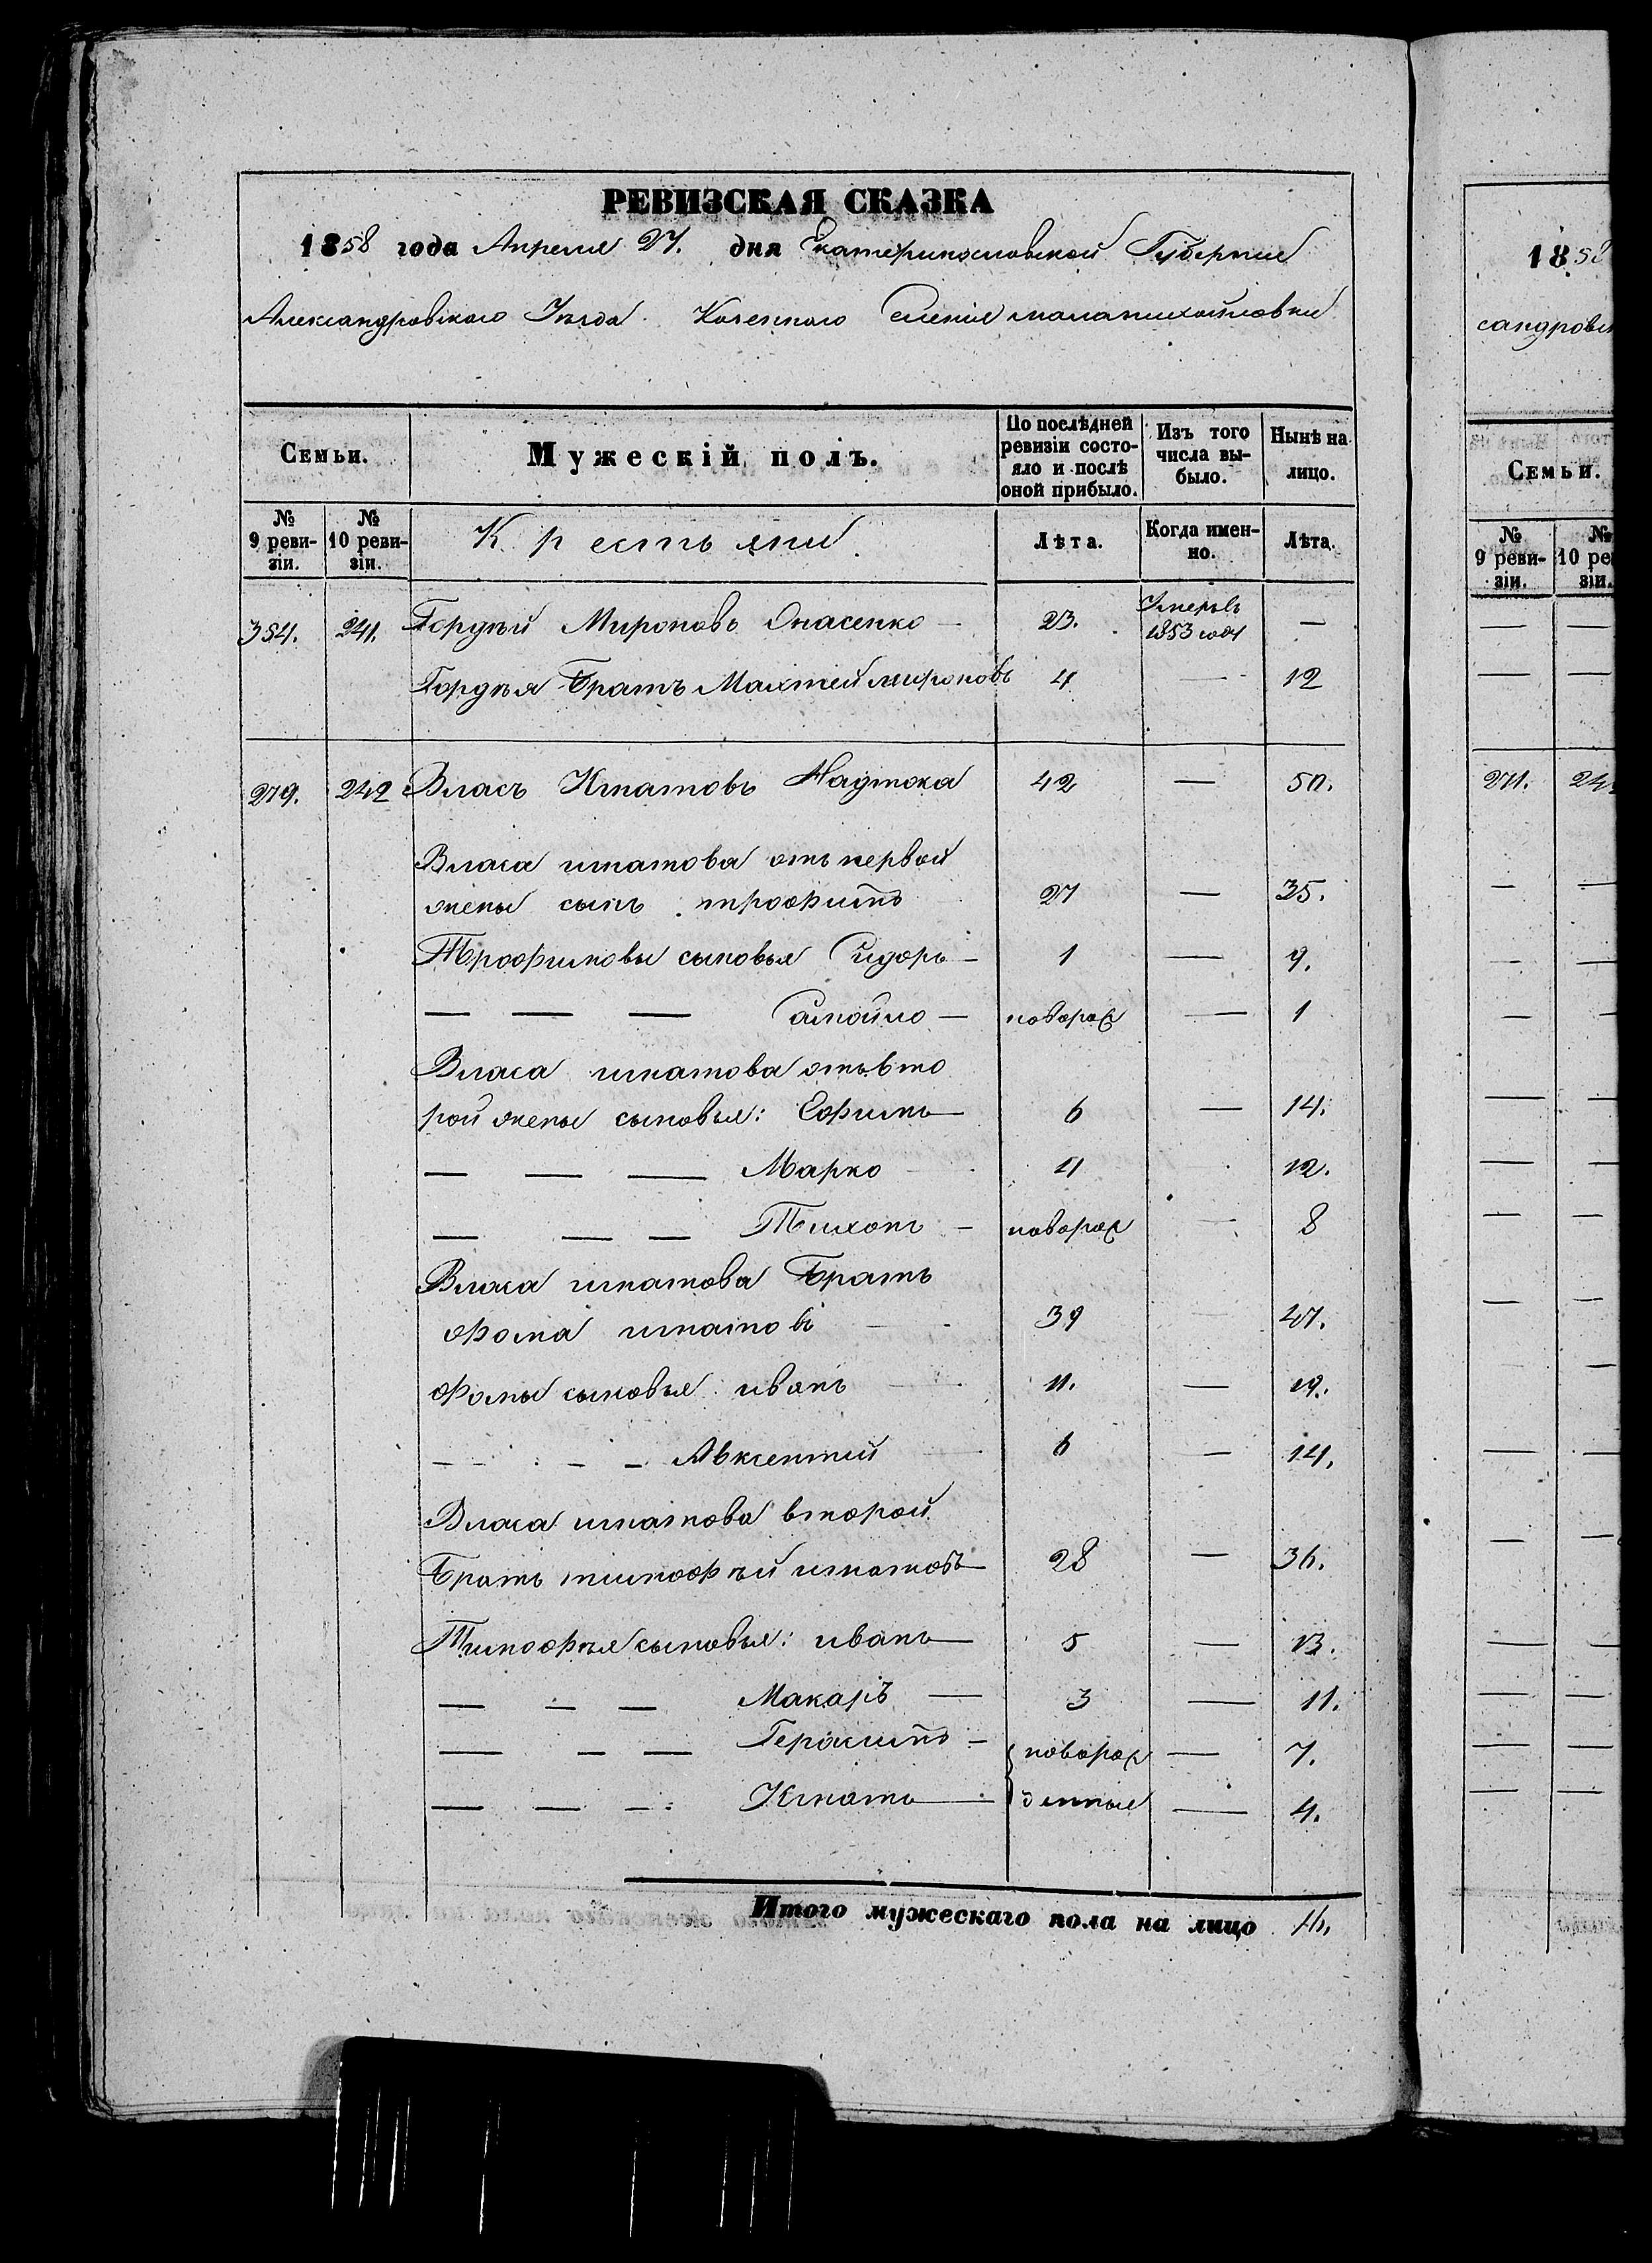 РЕВИЗСКАЯ СКАЗКА
1858 года Апреля 27. дня Екатеринославской Губернии
Александровского Уезда. Казенного Селения маламихайловки
Семьи. Мужескій полъ. По послѣдней ревизіи состояло и послѣ оной прибыло. Изъ того числа выбыло. Нынѣ на лицо.
№ 9 ревизіи. № 10 ревизіи. Крестьяни. Лѣта. Когда именно. Лѣта.
354. 241. Гордѣй Мироновъ Опасенко — 23. Умеръ 1853 года —
Гордѣя Братъ Махтей мироновъ 4 — 12
279. 242 Власъ Игнатовъ Надтока 42 — 50.
Власа игнатова отъ первой
жены сынъ трофимъ 27 — 35.
Трофимовы сыновья Сидоръ — 1 — 9.
— — — Самойло — новорож — 1
Власа игнатова отъ вто
рой жены сыновья: Ефимъ — 6 — 14.
— — — Марко — 4 12.
— — — Тихонъ — новорож — 8
Власа игнатова Братъ
Фома игнатовъ — 39 — 47.
Фомы сыновья: иванъ — 11. — 19.
— — — Авксентий — 6 — 14.
Власа игнатова второй
Братъ тимофѣй игнатовъ — 28 — 36.
Тимофѣя сыновья: иванъ — 5 — 13.
— — — Макаръ — 3 — 11.
— — — Герасимъ — новорож — 7.
— — — Игнатъ — денные — 4.
Итого мужескаго пола на лицо 16.
1858
сандровск
Семьи.
№ 9 ревизіи. № 10 реви
271. 24